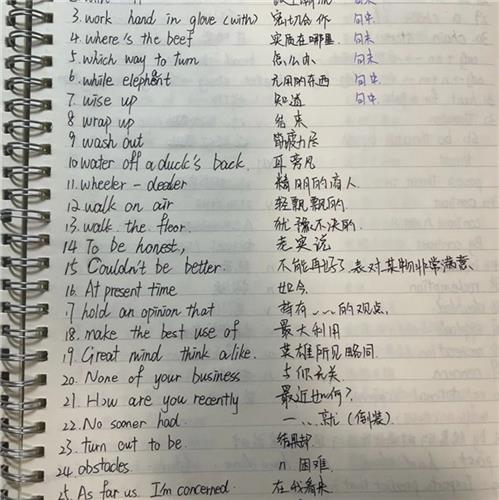 3. work hand in glove (with) 密切合作 句中
4. where's the beef 实质在哪里. 句末
5. which way to turn 怎么办 句末
6. while elephant 无用的东西 句中.
7. wise up 知道 句中.
8 wrap up 结束
9 wash out 筋疲力尽
10 water off a duck's back. 耳旁风
11. wheeler - dealer 精明的商人
12 walk on air 轻飘飘的.
13. walk the floor. 犹豫不决的.
14 To be honest, 老实说
15 Couldn't be better. 不能再好了. 表对某物非常满意.
16. At present time 如今.
17 hold an opinion that 持有...的观点.
18. make the best use of 最大利用
19. Great mind think alike. 英雄所见略同.
20. None of your business 与你无关.
21. How are you recently 最近如何?
22. No sooner had 一...就 (倒装)
23. turn out to be. 结果却
24. obstacles n. 困难.
25. As far us I'm concerned. 在我看来